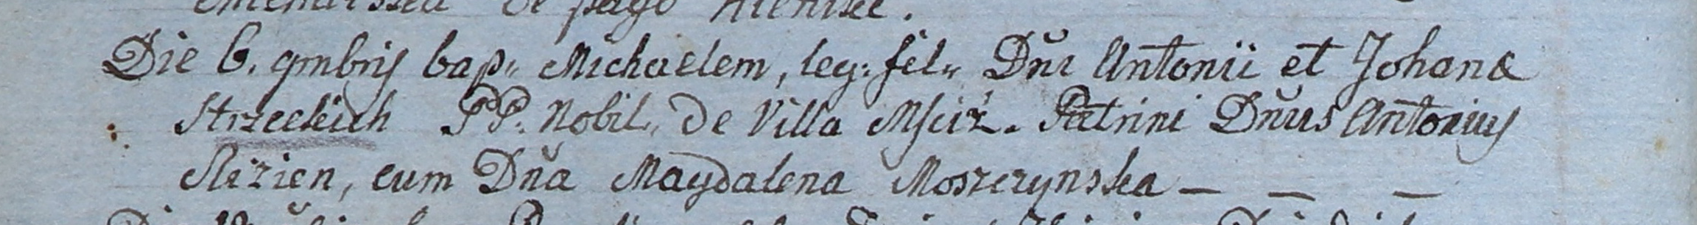 de pago
Die 6. 9mbris bap: Michaelem, leg: fil: Dni Antonii et Johanæ
Strzeckich PP. Nobil: de Villa Mściż. Patrini Dnus Antonius
Slizien, cum Dna Magdalena Moszczynska — — —